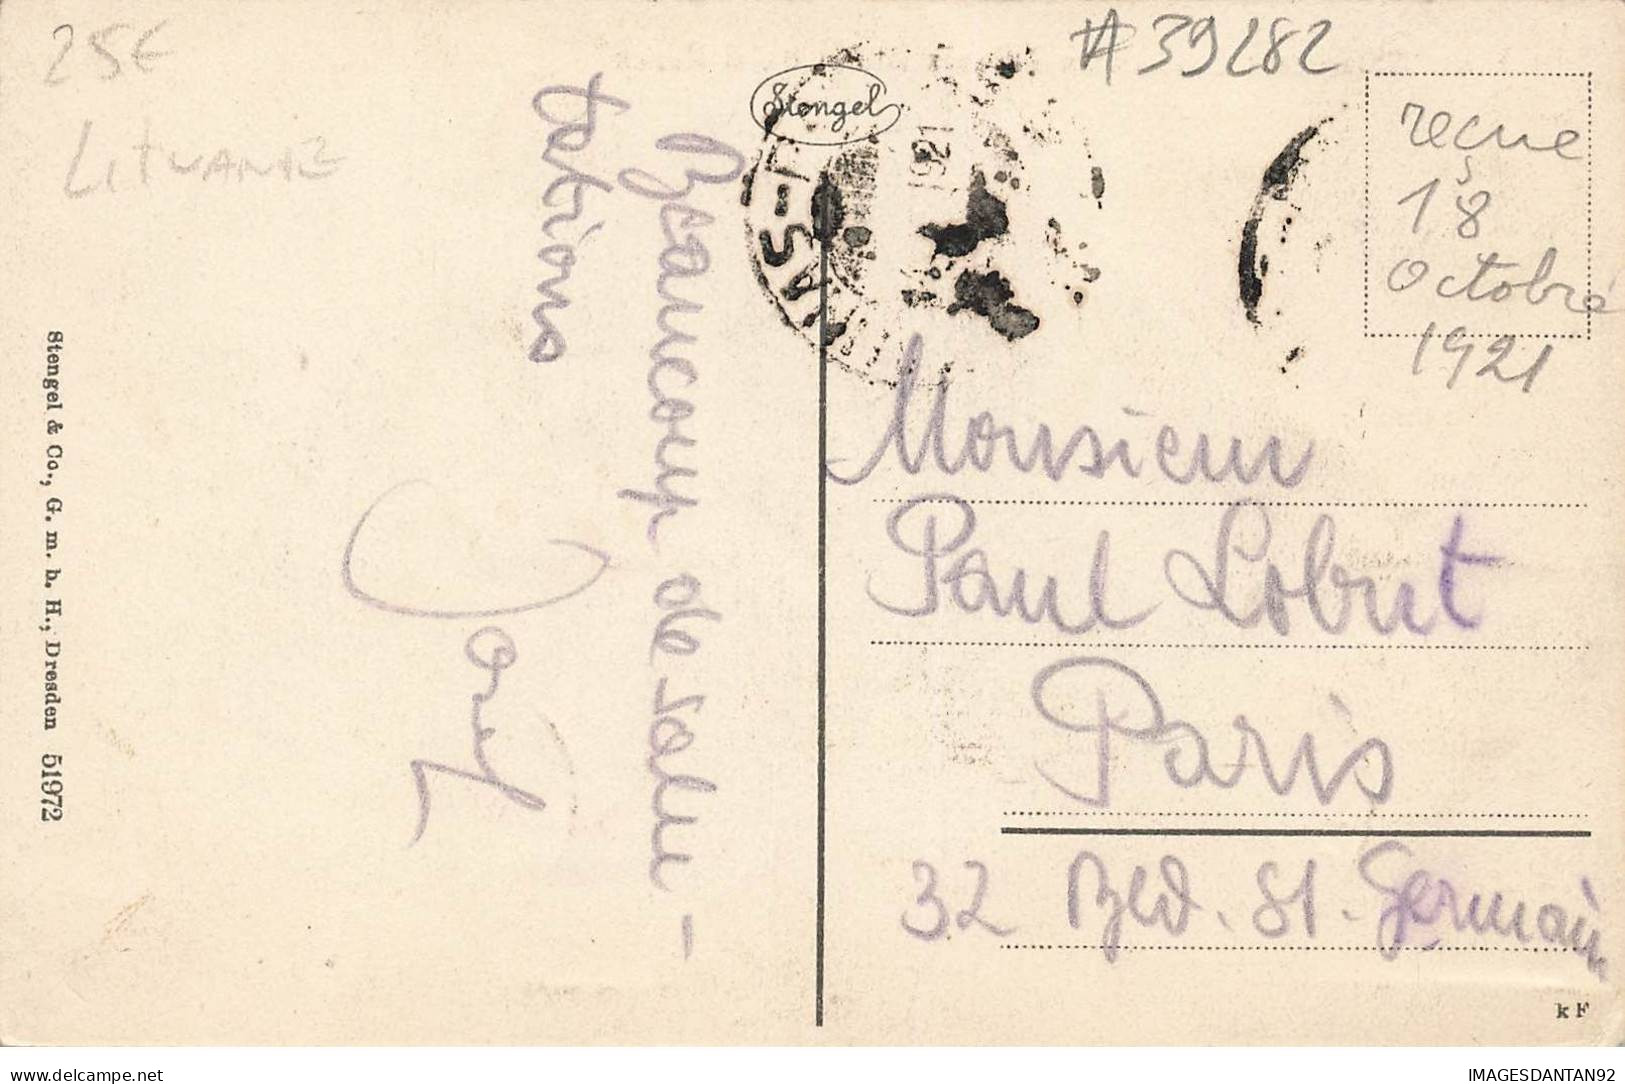 25€
LITUANIE
#39282
Stengel
1921
reçue
18
octobre
1921
Beaucoup de salu-
tations
Monsieur
Paul Lobut
Paris
32 Bld. St. Germain
Stengel & Co., G. m. b. H., Dresden 51972
k F
delcampe.net
IMAGESDANTAN92